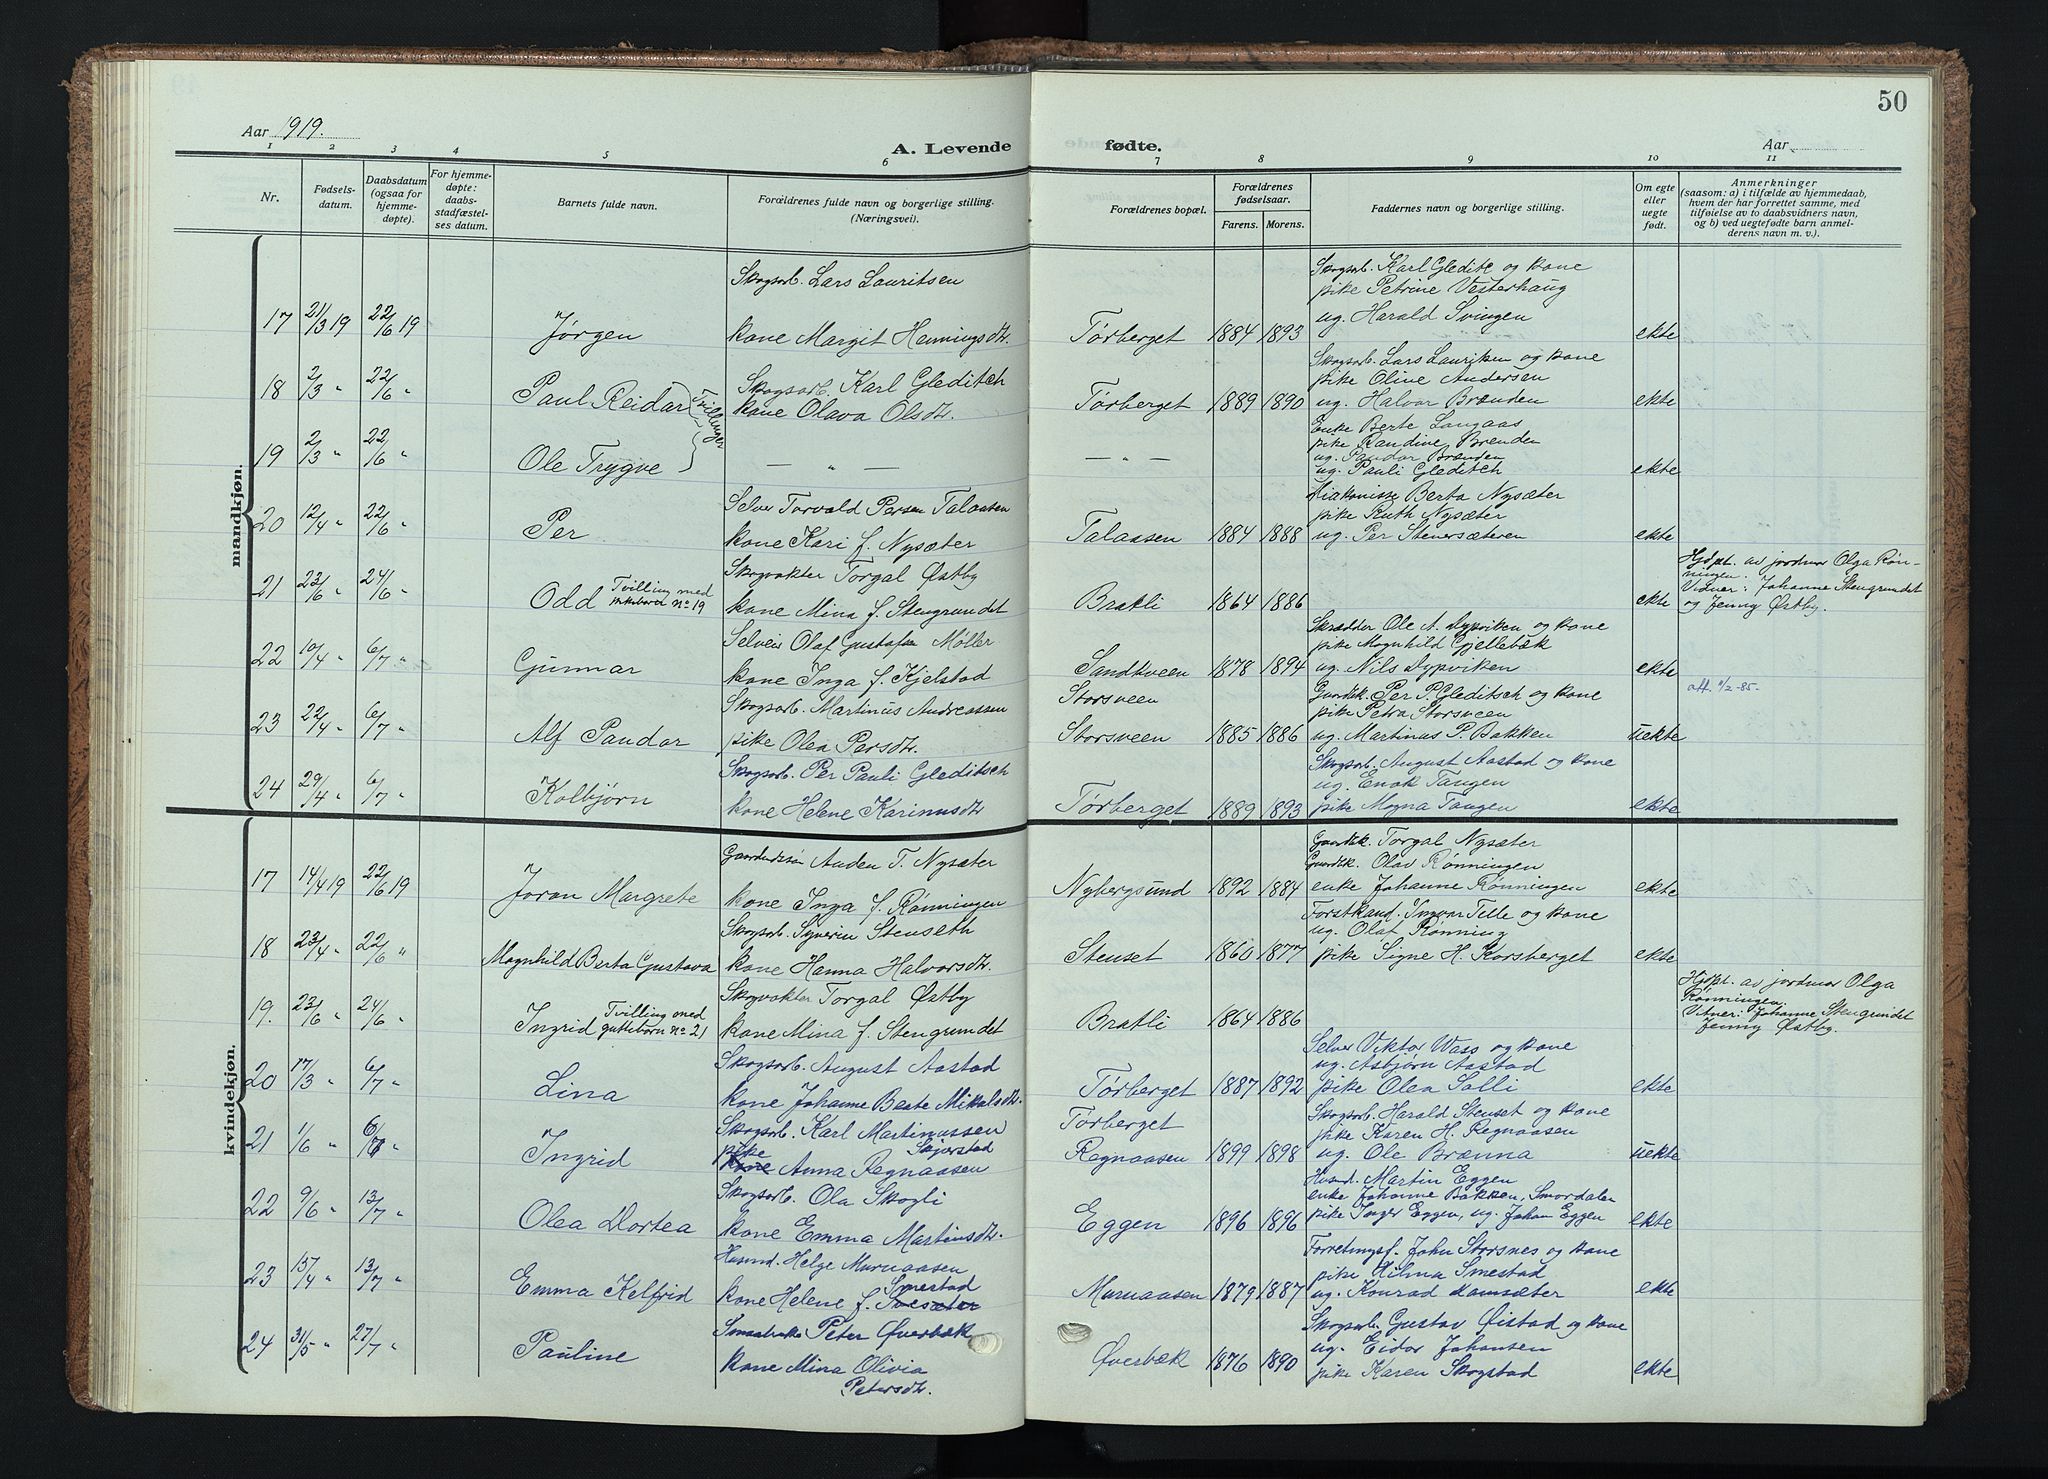 50
Aar 1919.
A. Levende fødte.
Aar
1 2 3 4 5 6 7 8 9 10 11
Nr.
Fødsels-
datum.
Daabsdatum
(ogsaa for
hjemme-
døpte).
For hjemme-
døpte:
daabs-
stadfæstel-
ses datum.
Barnets fulde navn.
Forældrenes fulde navn og borgerlige stilling.
(Næringsvei).
Forældrenes bopæl.
Forældrenes
fødselsaar.
Farens. Morens.
Faddernes navn og borgerlige stilling.
Om egte
eller
uegte
født.
Anmerkninger
(saasom: a) i tilfælde av hjemmedaab,
hvem der har forrettet samme, med
tilføielse av to daabsvidners navn,
og b) ved uegtefødte barn anmel-
derens navn m. v.).
mandkjøn.
Skogsarb. Lars Lauritsen
Skogsarb. Karl Gleditc og kone
pike Petrine Vesterhaug
ug. Harald Svingen
17 21/3 19 22/6 19 Jørgen kone Margit Henningsdtr. Tørberget 1884 1893 ekte
Skogsarb. Lars Lauritsen og kone
pike Olive Andersen
18 2/3 " 22/6 " Paul Reidar Tvillinger Skogsarb Karl Gleditsch
kone Olava Olsdtr. Tørberget 1889 1890 ug. Halvor Brænden ekte
Enke Berte Langaas
pike Randine Brenden
ug. Pandor Brænden
19 2/3 " 22/6 " Ole Trygve — " — — " — ug. Pauli Gleditch ekte
Selver Torvald Persen Talaasen
Diakonisse Berta Nysæter
pike Ruth Nysæter
20 12/4 " 22/6 " Per kone Kari f. Nysæter Talaasen 1884 1888 ug. Per Stenersæteren ekte
Skogvakter Torgal Østby
21 23/6 " 24/6 " Odd Tvilling med pikebarn no 19 kone Mina f. Stengrundet Bratli 1864 1886 ekte
Hjdpt. av jordmor Olga Røn-
ningen.
Vidner: Johanne Stengrundet
og Jenny Østby.
Selveier Olaf Gustafsen Møller
Skrædder Ole A. Dypviken og kone
pike Magnhild Gjellebæk
22 10/4 " 6/7 " Gunnar kone Inga f. Kjelstad Sandkveen 1878 1894 ug. Nils Dypviken ekte
att. 11/2-85-
Skogsarb. Martinus Andreassen Storsveen
Gaardbk. Per P. Gleditsch og kone
pike Petra Storsveen
23 22/4 " 6/7 " Alf Pandor pike Olea Persdtr. Storsveen 1885 1886 ug. Martinus P. Bakken uekte
Skogsarb. Per Pauli Gleditsch
Skogsarb. August Aastad og kone
ug. Enok Tangen
24 29/4 " 6/7 " Kolbjørn kone Helene Karinusdtr Tørberget 1889 1893 pike Magna Tangen ekte
kvindekjøn.
Gaardmandssøn Anden T. Nysæter
Gaardbk. Torgal Nysæter
Gaardbk. Olav Rønningen
17 14/4 19 22/6 19 Joran Margrete kone Inga f. Rønningen Nybergsund 1892 1884 enke Johanne Rønningen ekte
Skogsarb. Syverin Stenseth
Forstkand. Ingvar Telle og kone
ug. Olaf Rønning
18 23/4 " 22/6 " Magnhild Berta Gustava kone Hanna Halvorsdtr. Stenset 1860 1877 pike Signe H. Korsberget ekte
Skogvakter Torgal Østby
19. 23/6 " 24/6 " Ingrid Tvilling med guttebarn no 21 kone Mina f. Stengrundet Bratli 1864 1886
Hjdpt. av jordmor Olga
Rønningen.
Vitner: Johanne Stengrundet
Jenny Østby.
Skogsarb. August Aastad
Selver Viktor Wass og kone
ug. Asbjørn Aastad
20 17/3 " 6/7 " Lina kone Johanne Beate Mikalsdtr. Tørberget 1887 1892 pike Olea Salli ekte
Skogsarb. Karl Martinussen Skjerstad Tørberget
Skogsarb. Harald Stenset og kone
pike Karen H. Regnaasen
21 1/6 " 6/7 " Ingrid pike kone Anna Regnaasen Regnaasen 1899 1898 ug. Ole Brænna uekte
Skogsarb. Ola Skogli
Husmd. Martin Eggen
enke Johanne Bakken, Smordalen
22 9/6 " 13/7 " Olea Dortea kone Emma Martinsdtr. Eggen 1896 1896 pike Inger Eggen, ug. Johan Eggen ekte
Husmd. Helge Murnaasen
Forretningsf. John Storsnes og kone
pike Hilma Smestad
23 15/4 " 13/7 " Emma Kelfrid kone Helene f. Smestad Murnaasen 1879 1887 ug. Konrad Kamsæter ekte
Smaabruker Peter Øverbæk
Skogsarb. Gustav Øistad og kone
ug. Eidor Johansen
24 31/5 " 27/7 " Pauline kone Mina Olivia
Petersdtr. Øverbæk 1876 1890 pike Karen Skogstad ekte